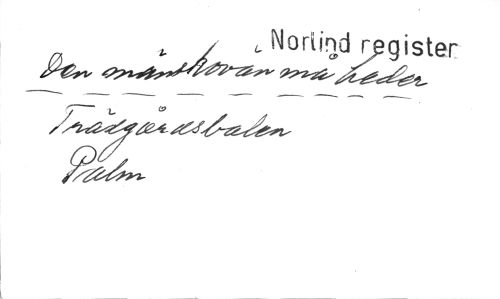 Norlind register
Den människovän må heder
Trädgårdsbalen
Palm